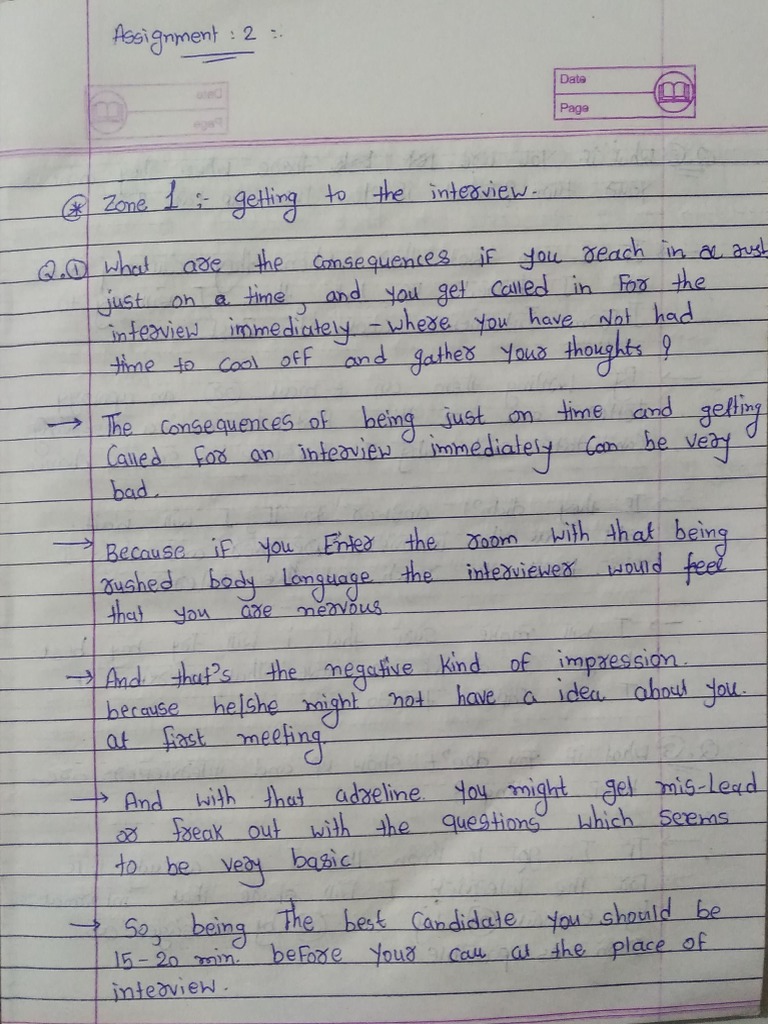 Assignment : 2 :-
Date
Page
* Zone 1 :- getting to the interview.
Q.① What are the consequences if you reach in a rush
just on a time, and you get called in For the
interview immediately - where you have Not had
time to cool off and gather your thoughts ?
→ The consequences of being just on time and getting
Called For an interview immediately can be very
bad.
→ Because if you Enter the room with that being
rushed body Language the interviewer would feel
that you are nervous
→ And that's the negative kind of impression.
because he/she might not have a idea about you.
at first meeting.
→ And with that adreline you might get mis-Lead
or freak out with the questions which seems
to be very basic
→ So, being The best Candidate you should be
15-20 min. before your call at the place of
interview.